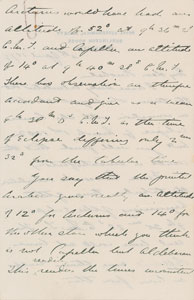 Arcturus would have had an
altitude of 52° at 9h 36m
G.M.T. and Capella an altitude
of 14° at 9h 40m 28s G.M.T.
These two observations are therefore
accordant and give as a mean
9h 38m G.M.T. as the time
of Eclipse differing only
32s from the tabular time
You say that the printed
gives really an altitude
of 12° for Arcturus and 14° for
the other star which you think
is not Capella but Aldebaran
This renders the times